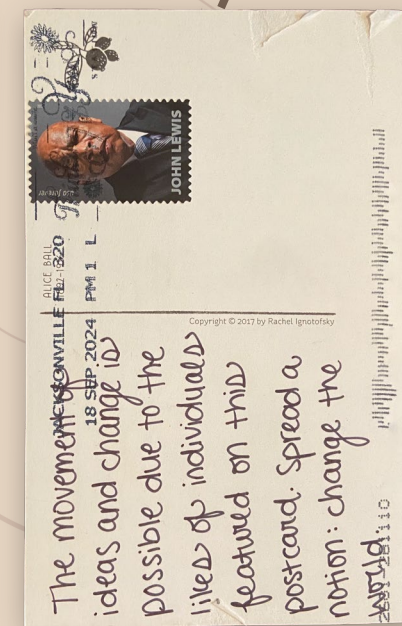 ALICE BALL
JACKSONVILLE FL 320
18 SEP 2024 PM 1 L
USA FOREVER
JOHN LEWIS
Copyright © 2017 by Rachel Ignotofsky
The movement of
ideas and change is
possible due to the
likes of individuals
featured on this
postcard. Spread a
notion: change the
world.